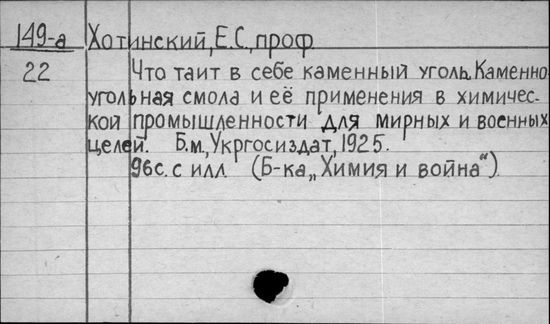 149-а Хотинский, Е.С., проф.
22 Что таит в себе каменный уголь. Каменно-
угольная смола и её применения в химичес-
кой промышленности для мирных и военных
целей. Б.м., Укргосиздат, 1925.
96с. с илл. (Б-ка „Химия и война“)